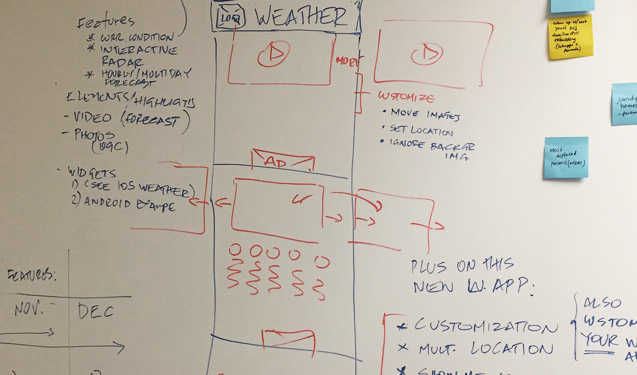 Features
* USER CONDITION
* INTERACTIVE
RADAR
* HOURLY/MULTIDAY
FORECAST
ELEMENTS/HIGHLIGHTS
- VIDEO (FORECAST)
- PHOTOS
(UGC)
- WIDGETS
1) (SEE IOS WEATHER)
2) ANDROID EXAMPE
FEATURES:
NOV.
DEC
LOGO
WEATHER
MORE
AD
CUSTOMIZE
• MOVE IMAGES
• SET LOCATION
• IGNORE BACKGR
IMG
PLUS ON THIS
NEW W. APP:
* CUSTOMIZATION
* MULT. LOCATION
* SHOW ME
ALSO
YOUR W